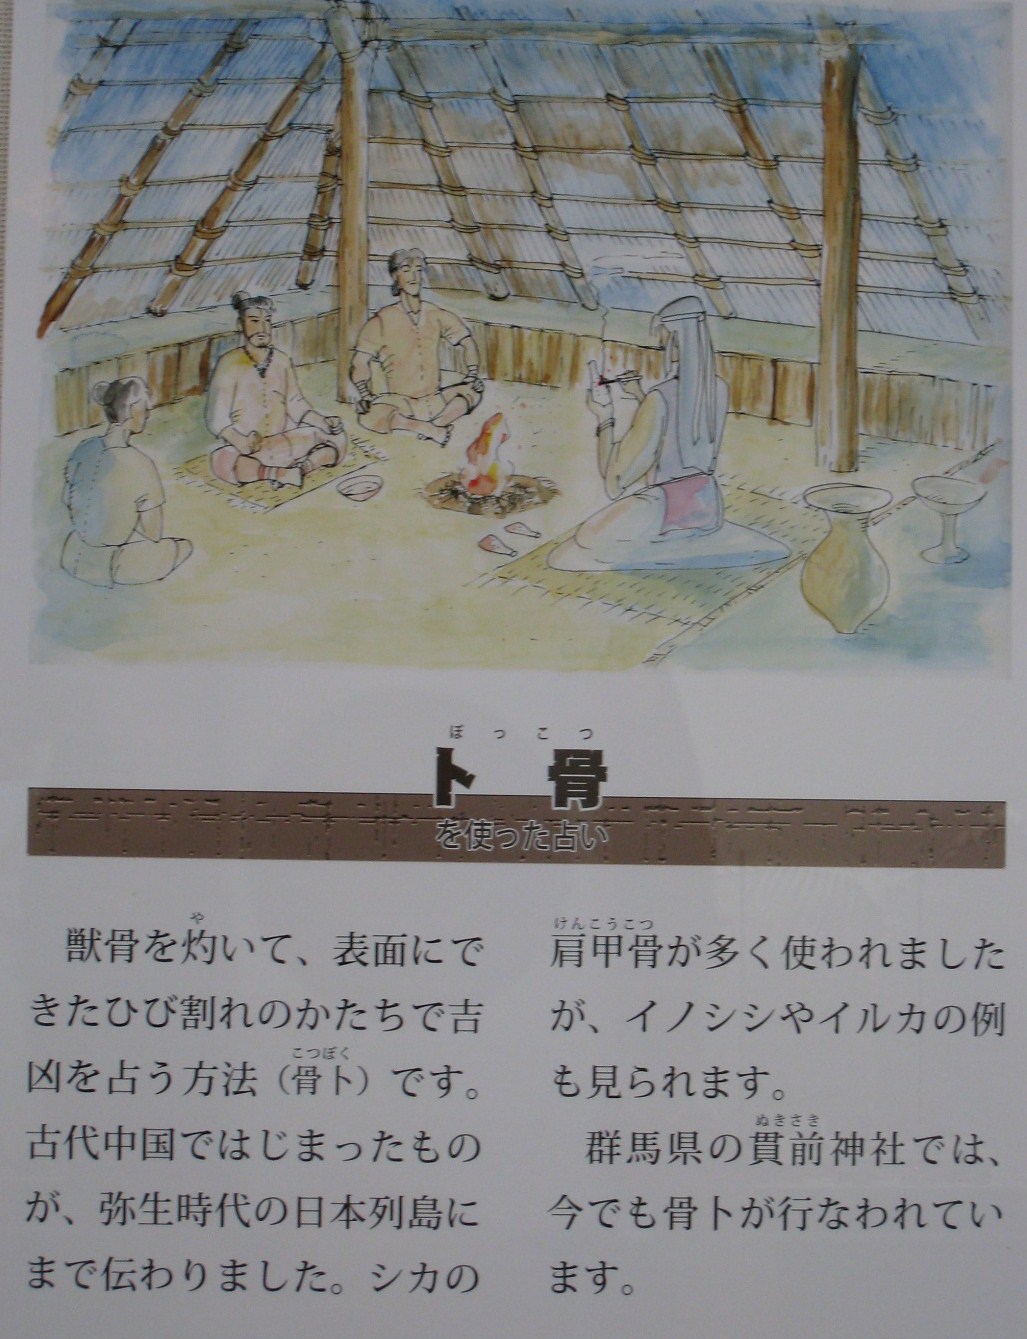 ぼっこつ
卜骨
を使った占い
や
獣骨を灼いて、表面にで
きたひび割れのかたちで吉
こつぼく
凶を占う方法（骨卜）です。
古代中国ではじまったもの
が、弥生時代の日本列島に
まで伝わりました。シカの
けんこうこつ
肩甲骨が多く使われました
が、イノシシやイルカの例
も見られます。
ぬきさき
群馬県の貫前神社では、
今でも骨卜が行なわれてい
ます。